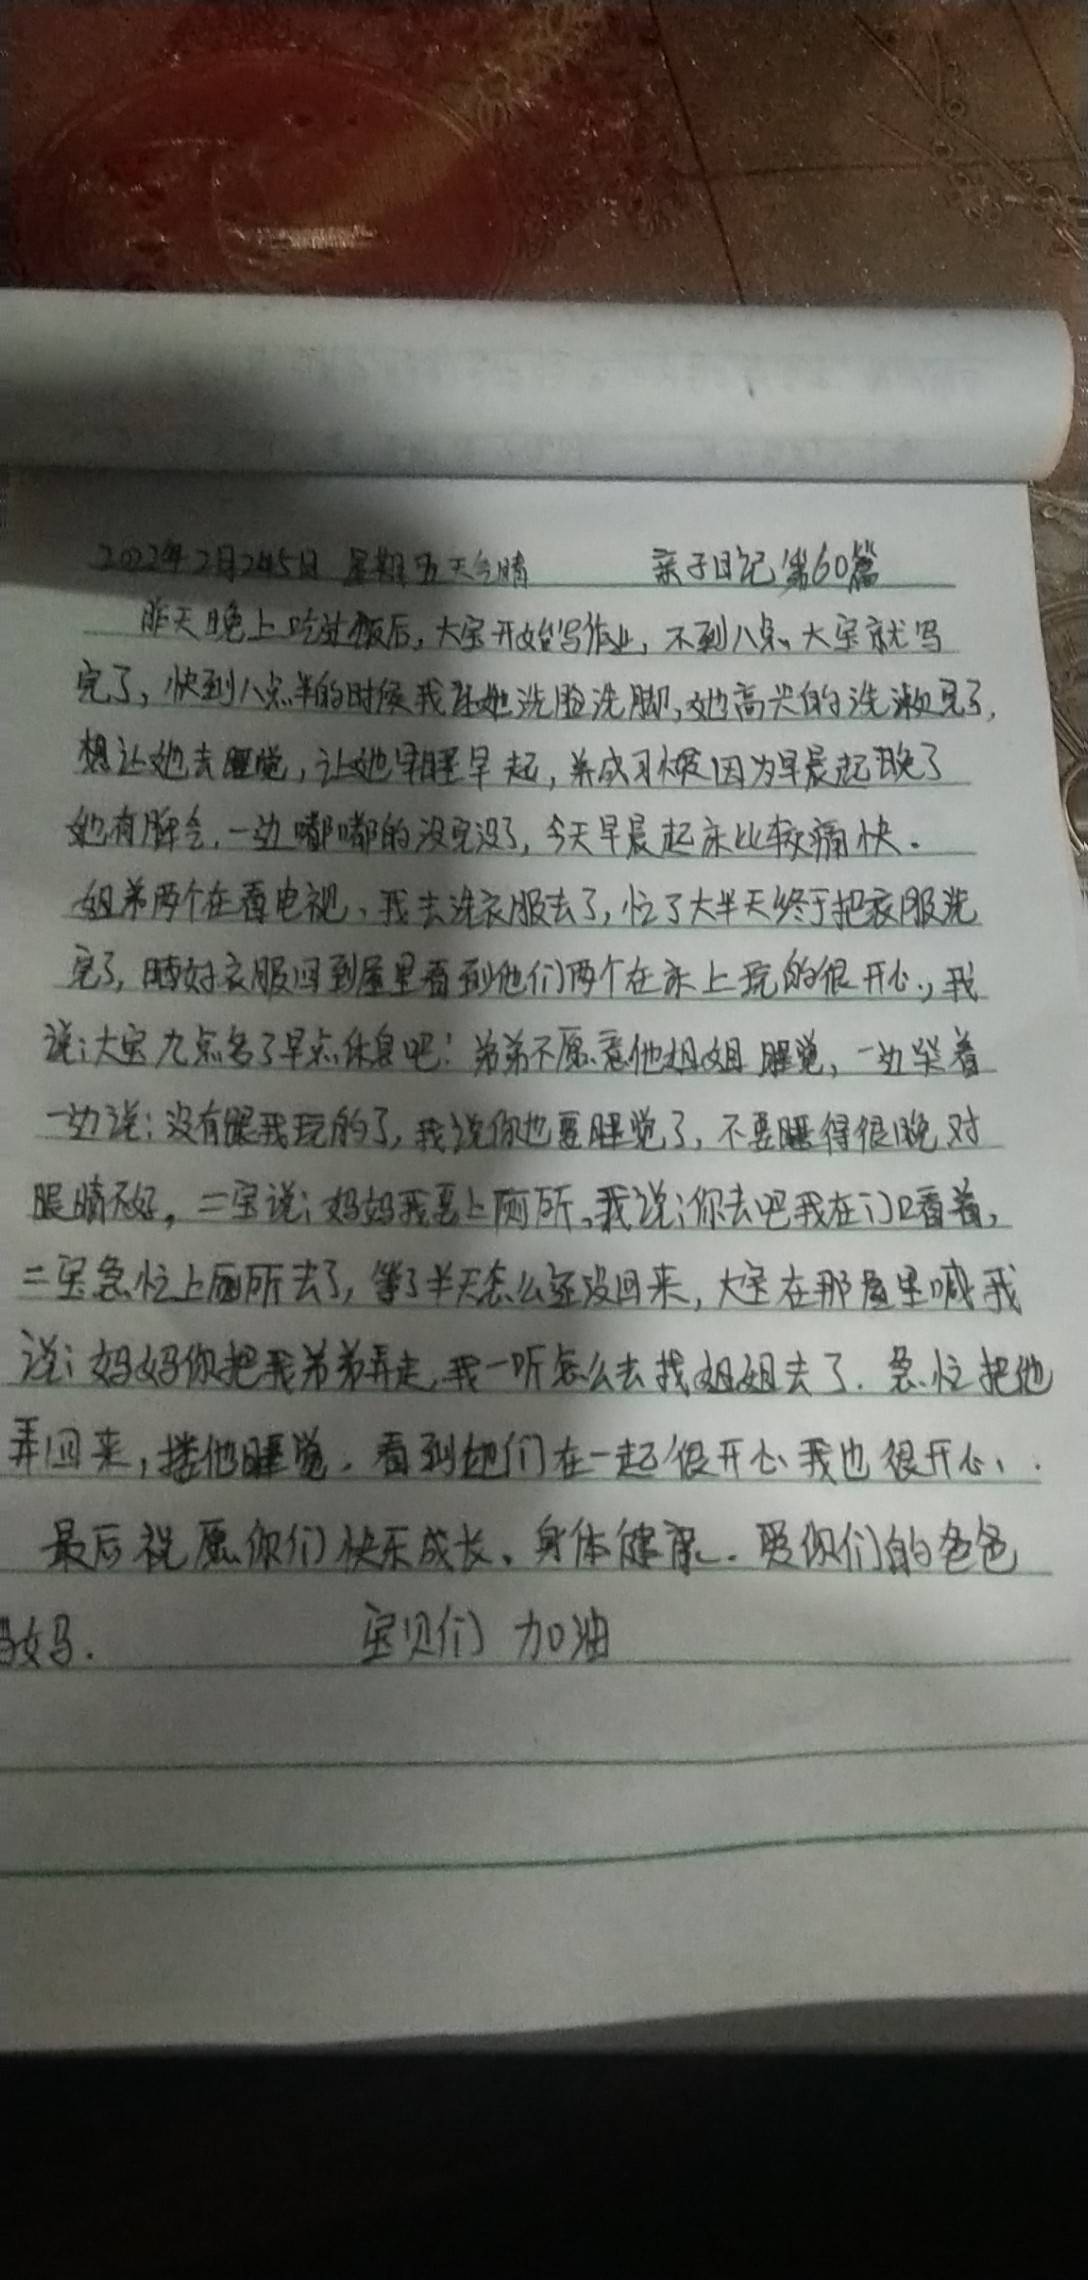 2022年2月25日 星期五天气晴 亲子日记第60篇
昨天晚上吃过饭后，大宝开始写作业，不到八点、大宝就写
完了，快到八点半的时候我让她洗脸洗脚，她高兴的洗漱完了，
想让她去睡觉，让她早睡早起，养成习惯因为早晨起晚了
她有脾气，一边嘟嘟的没完没了，今天早晨起床比较痛快。
姐弟两个在看电视、我去洗衣服去了，忙了大半天终于把衣服洗
完了，晒好衣服回到屋里看到他们两个在床上玩的很开心，我
说：大宝九点多了早点休息吧！弟弟不愿意他姐姐睡觉，一边哭着
一边说：没有跟我玩的了，我说你也要睡觉了，不要睡得很晚对
眼睛不好，二宝说：妈妈我要上厕所，我说：你去吧我在门口看着，
二宝急忙上厕所去了，等了半天怎么还没回来，大宝在那屋里喊我
说：妈妈你把我弟弟弄走，我一听怎么去找姐姐去了．急忙把他
弄回来，搂他睡觉．看到他们在一起很开心我也很开心．
最后祝愿你们快乐成长、身体健康．爱你们的爸爸
妈妈． 宝贝们 加油